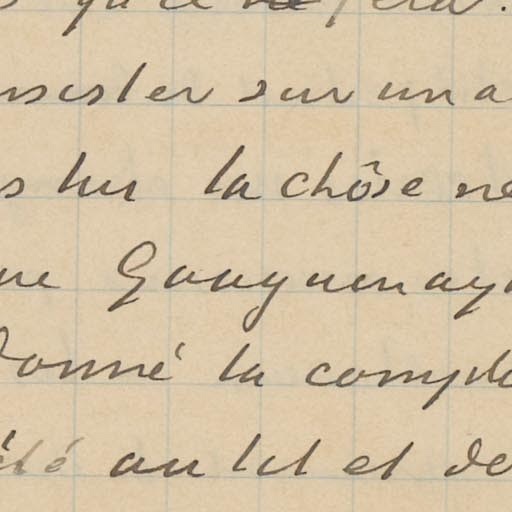 qu'il ne fera.
nsister sur un a
s lui la chôse ne
ue Gouguenay
donné la compl
été au lit et de